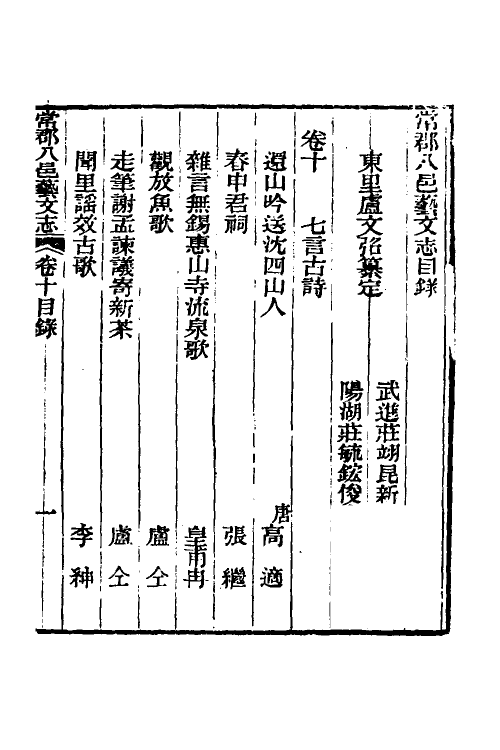 常郡八邑藝文志目錄
東里盧文弨纂定
武進莊翊昆新
陽湖莊毓鋐俊
卷十　七言古詩
還山吟送沈四山人　唐高適
春申君祠　張繼
雜言無錫惠山寺流泉歌　皇甫冉
觀放魚歌　盧仝
走筆謝孟諫議寄新茶　盧仝
聞里謠效古歌　李紳
常郡八邑藝文志　卷十目錄　一